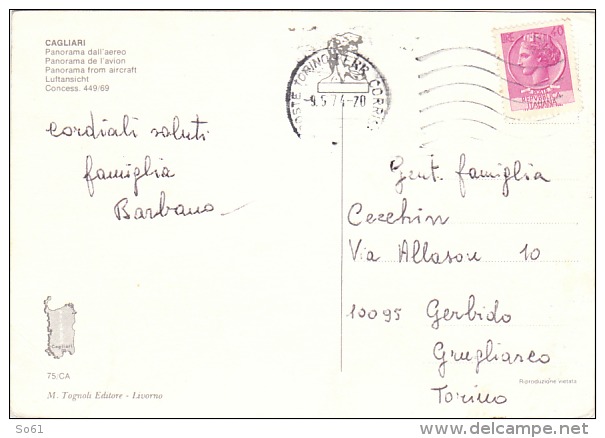 CAGLIARI
Panorama dall'aereo
Panorama de l'avion
Panorama from aircraft
Luftansicht
Concess. 449/69
cordiali saluti
famiglia
Barbano
POSTE TORINO FERR. CORRISP
-9.5.74-20
40
Gent. famiglia
Cecchin
Via Allason 10
10095 Gerbido
Grugliasco
Torino
Cagliari
75/CA
M. Tognoli Editore - Livorno
Riproduzione vietata
So61
delcampe.net